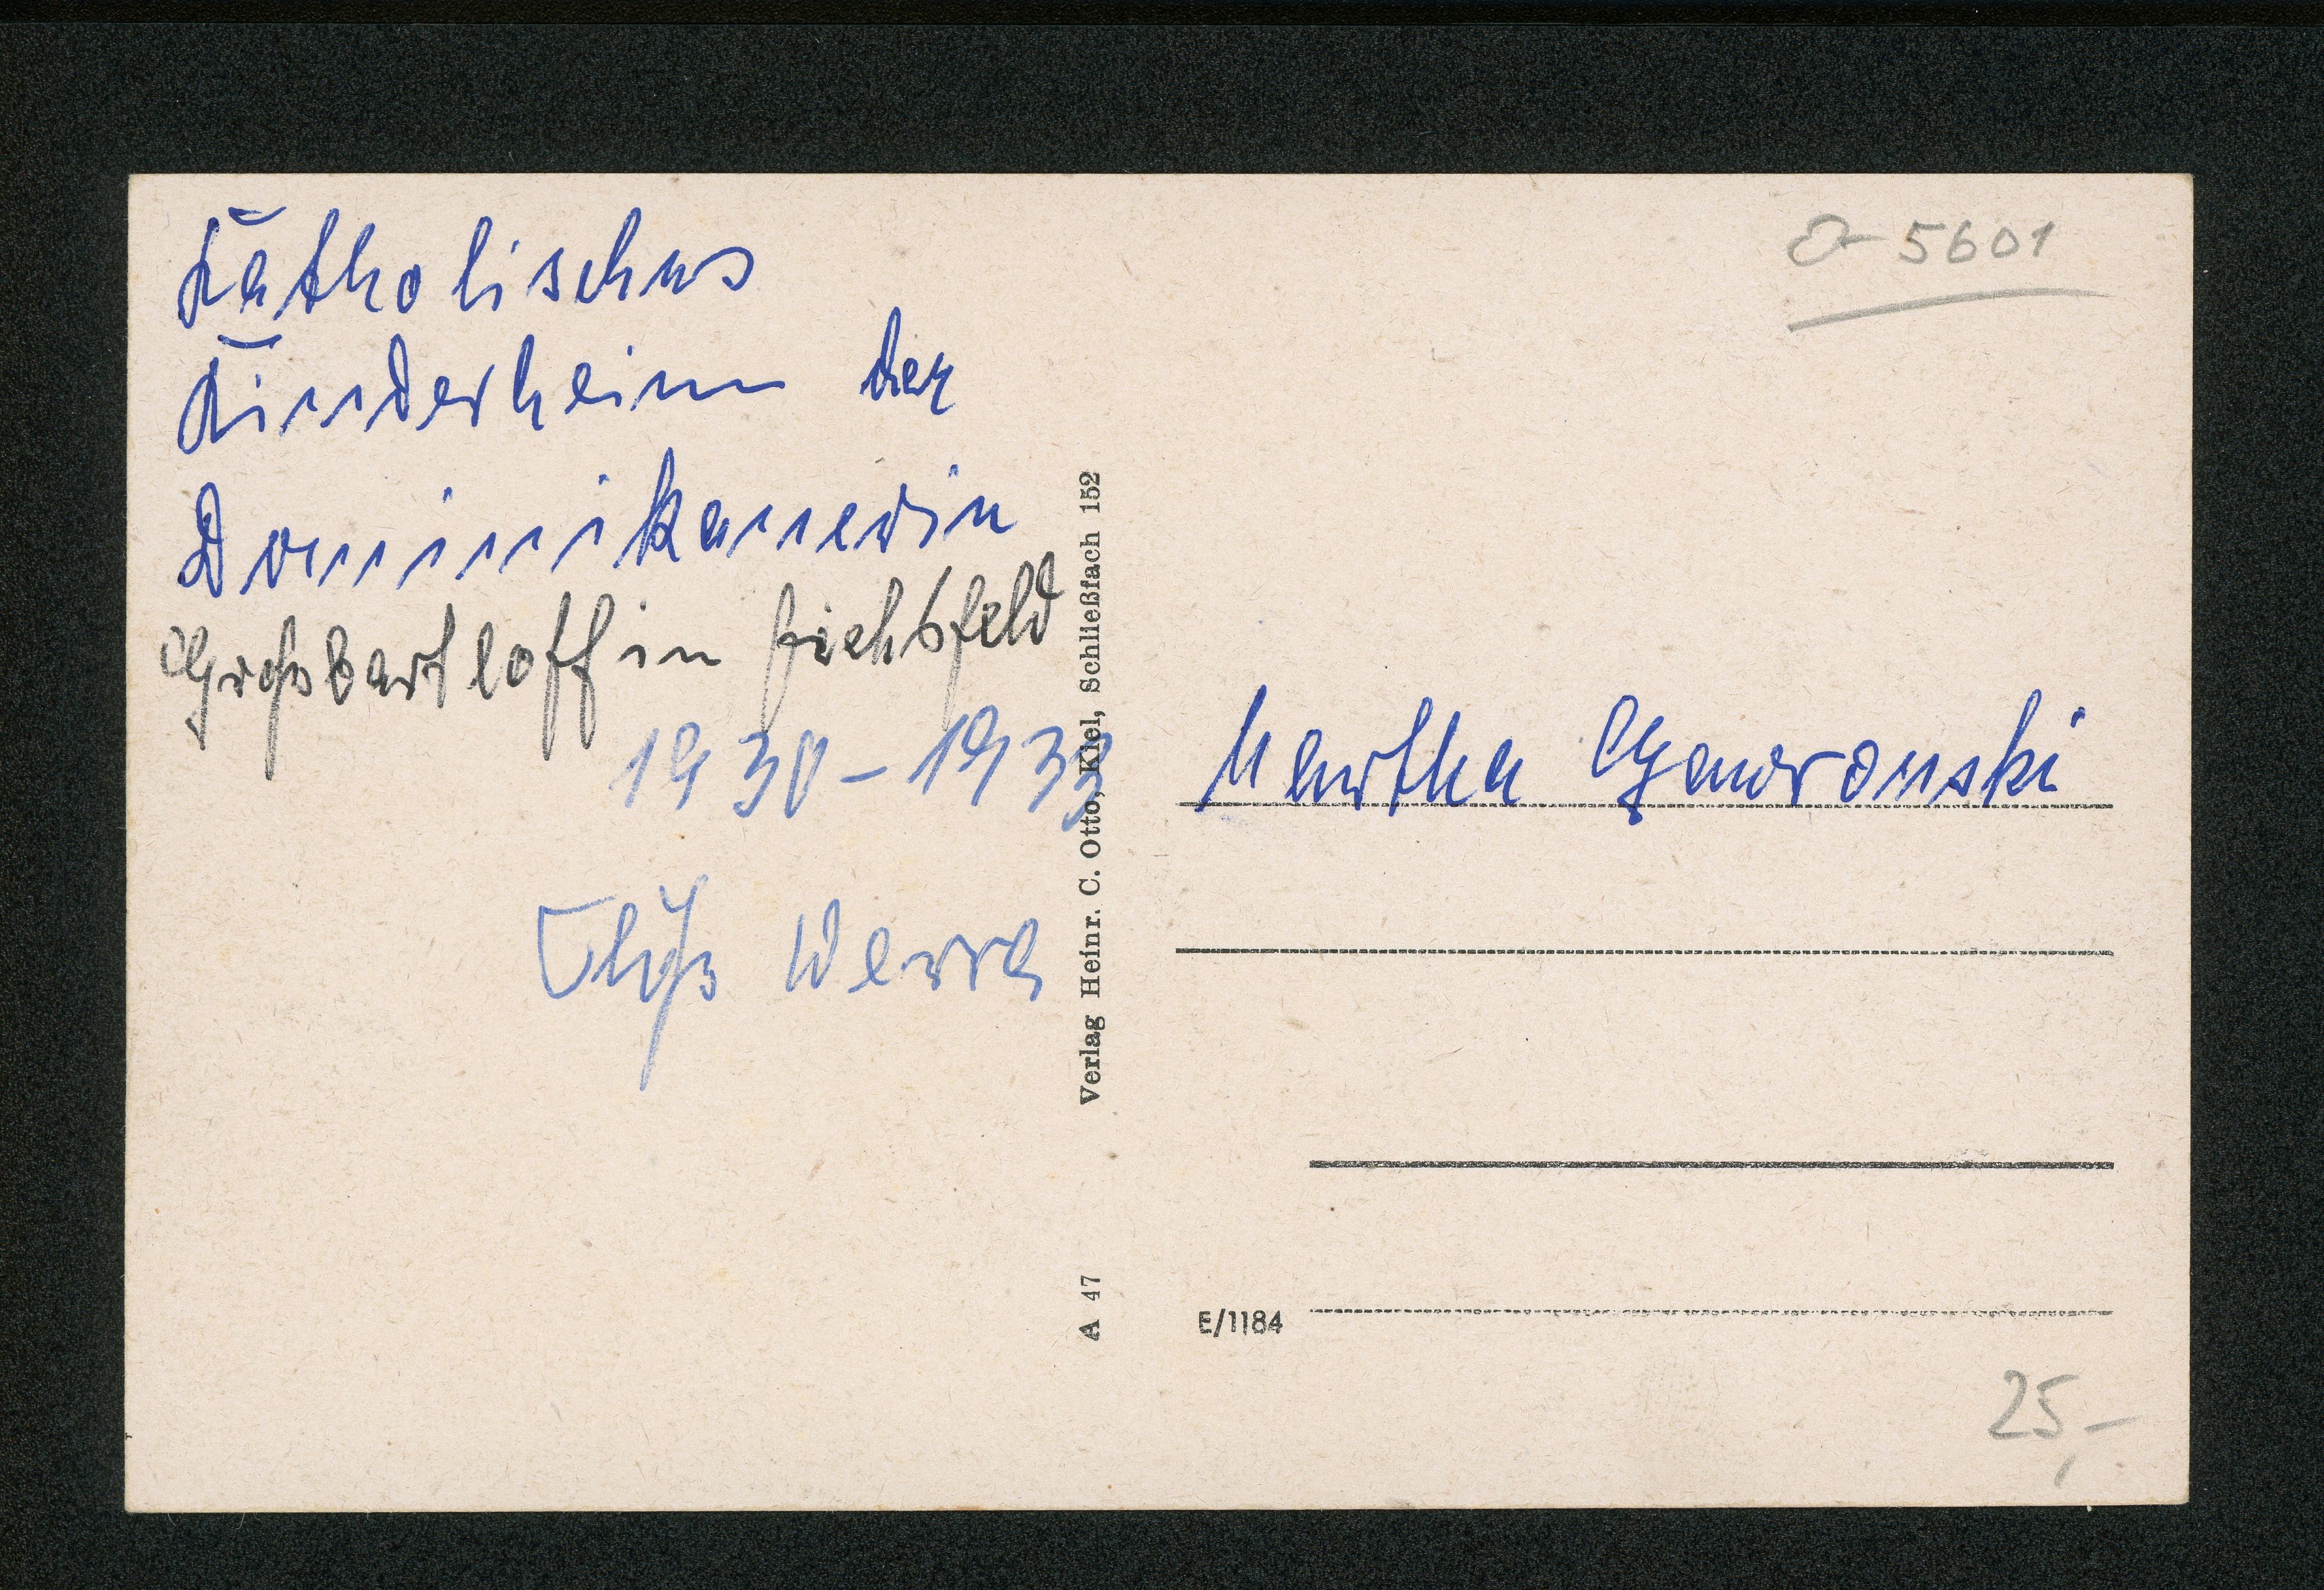 Katholisches
Kinderheim der
Dominikanerin
Großbartloff in Eichsfeld
1930 - 1933
Fluß Werra
Verlag Heinr. C. Otto, Kiel, Schließfach 152
A 47
O-5601
Martha Gawronski
E/1184
25,-